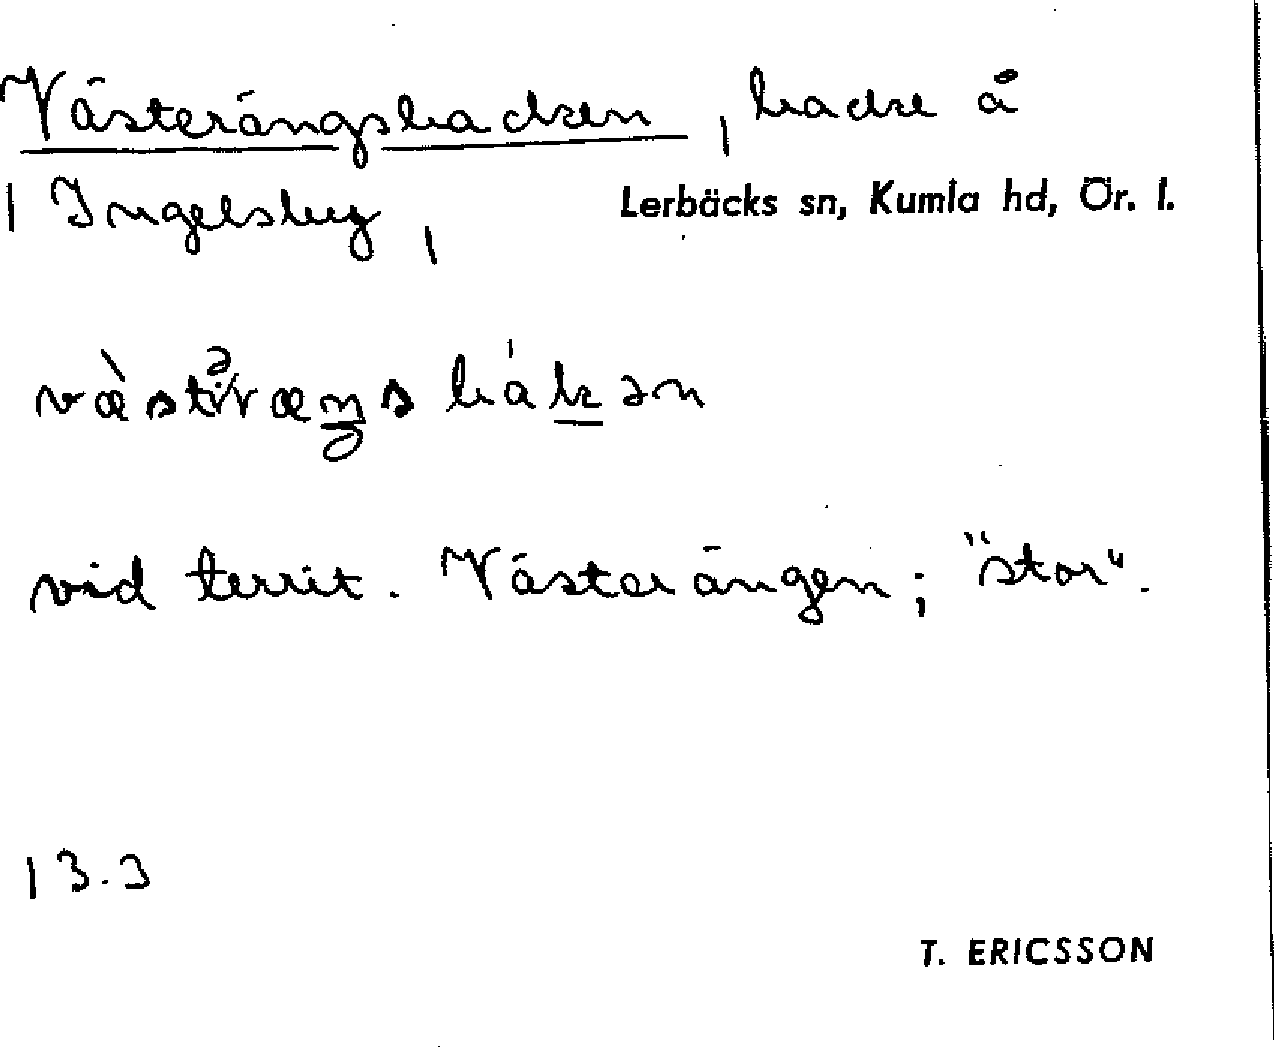 Västerängsbacken, backe å
Ingelsby, Lerbäcks sn, Kumla hd, Ör. l.
vid territ. Västerängen; "stor".
13.3
T. ERICSSON